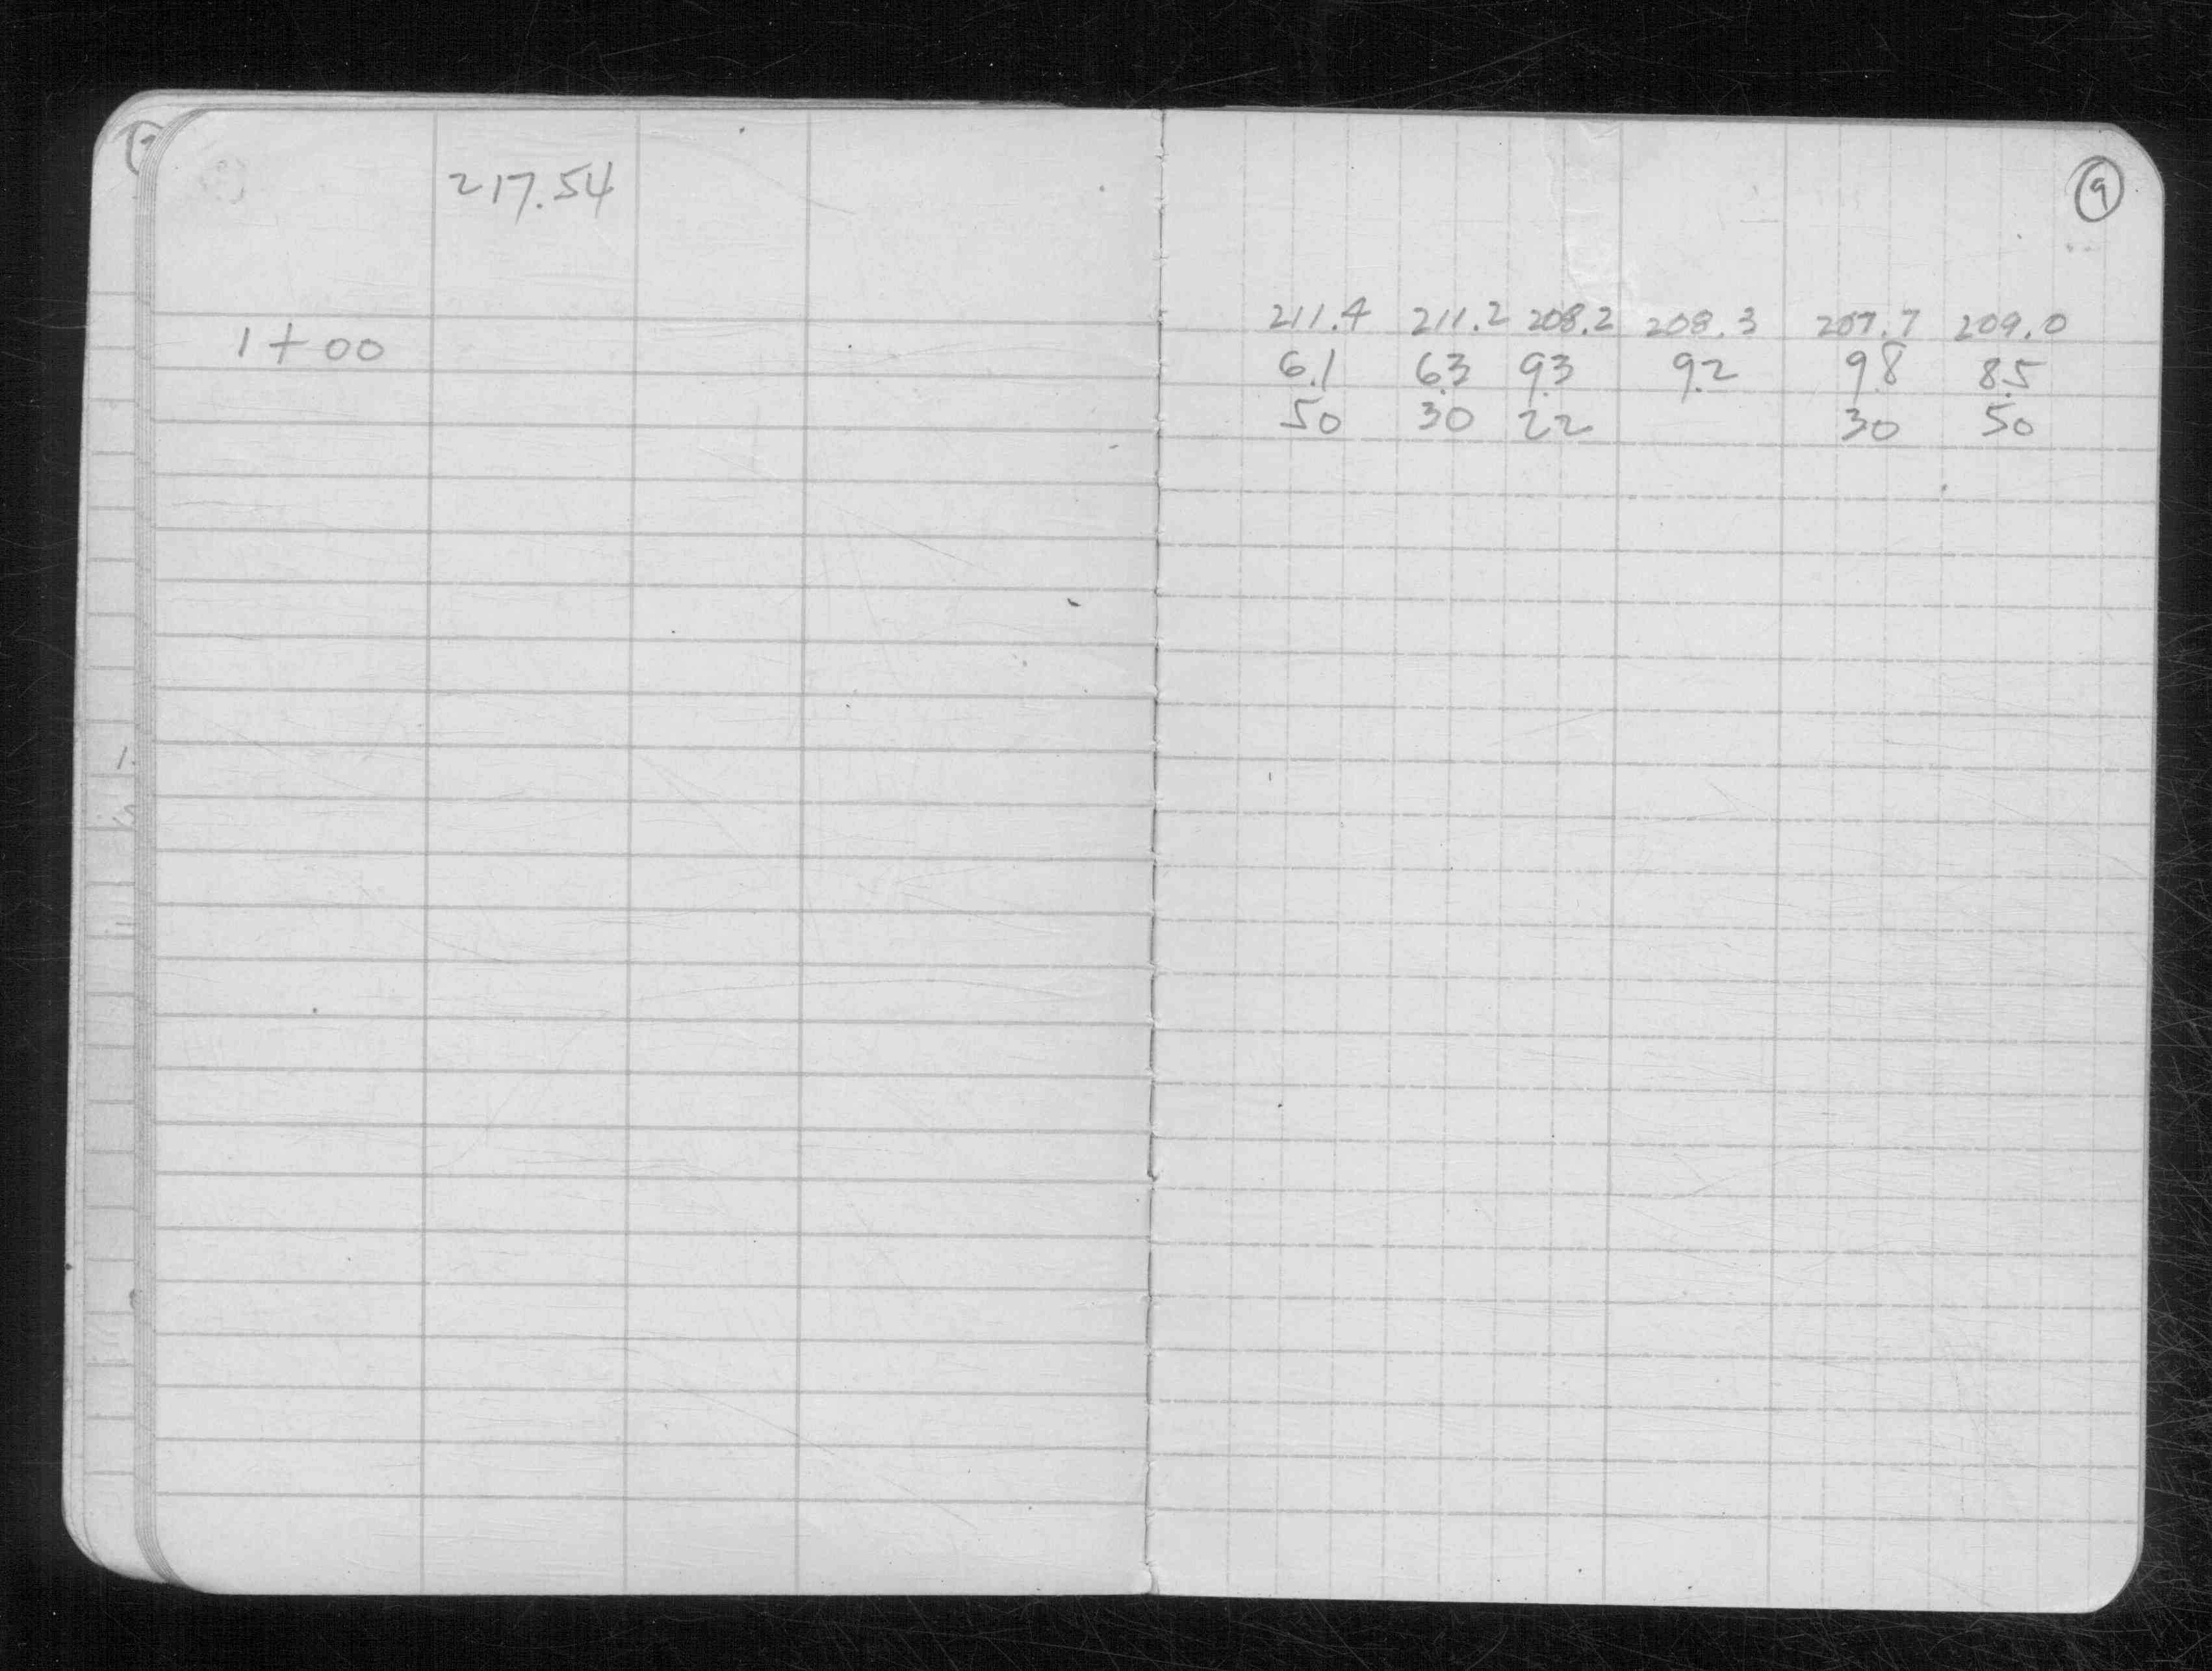 217.54
1+00
9
211.4 211.2 208.2 208.3 207.7 209.0
6.1 6.3 9.3 9.2 9.8 8.5
50 30 22 30 50